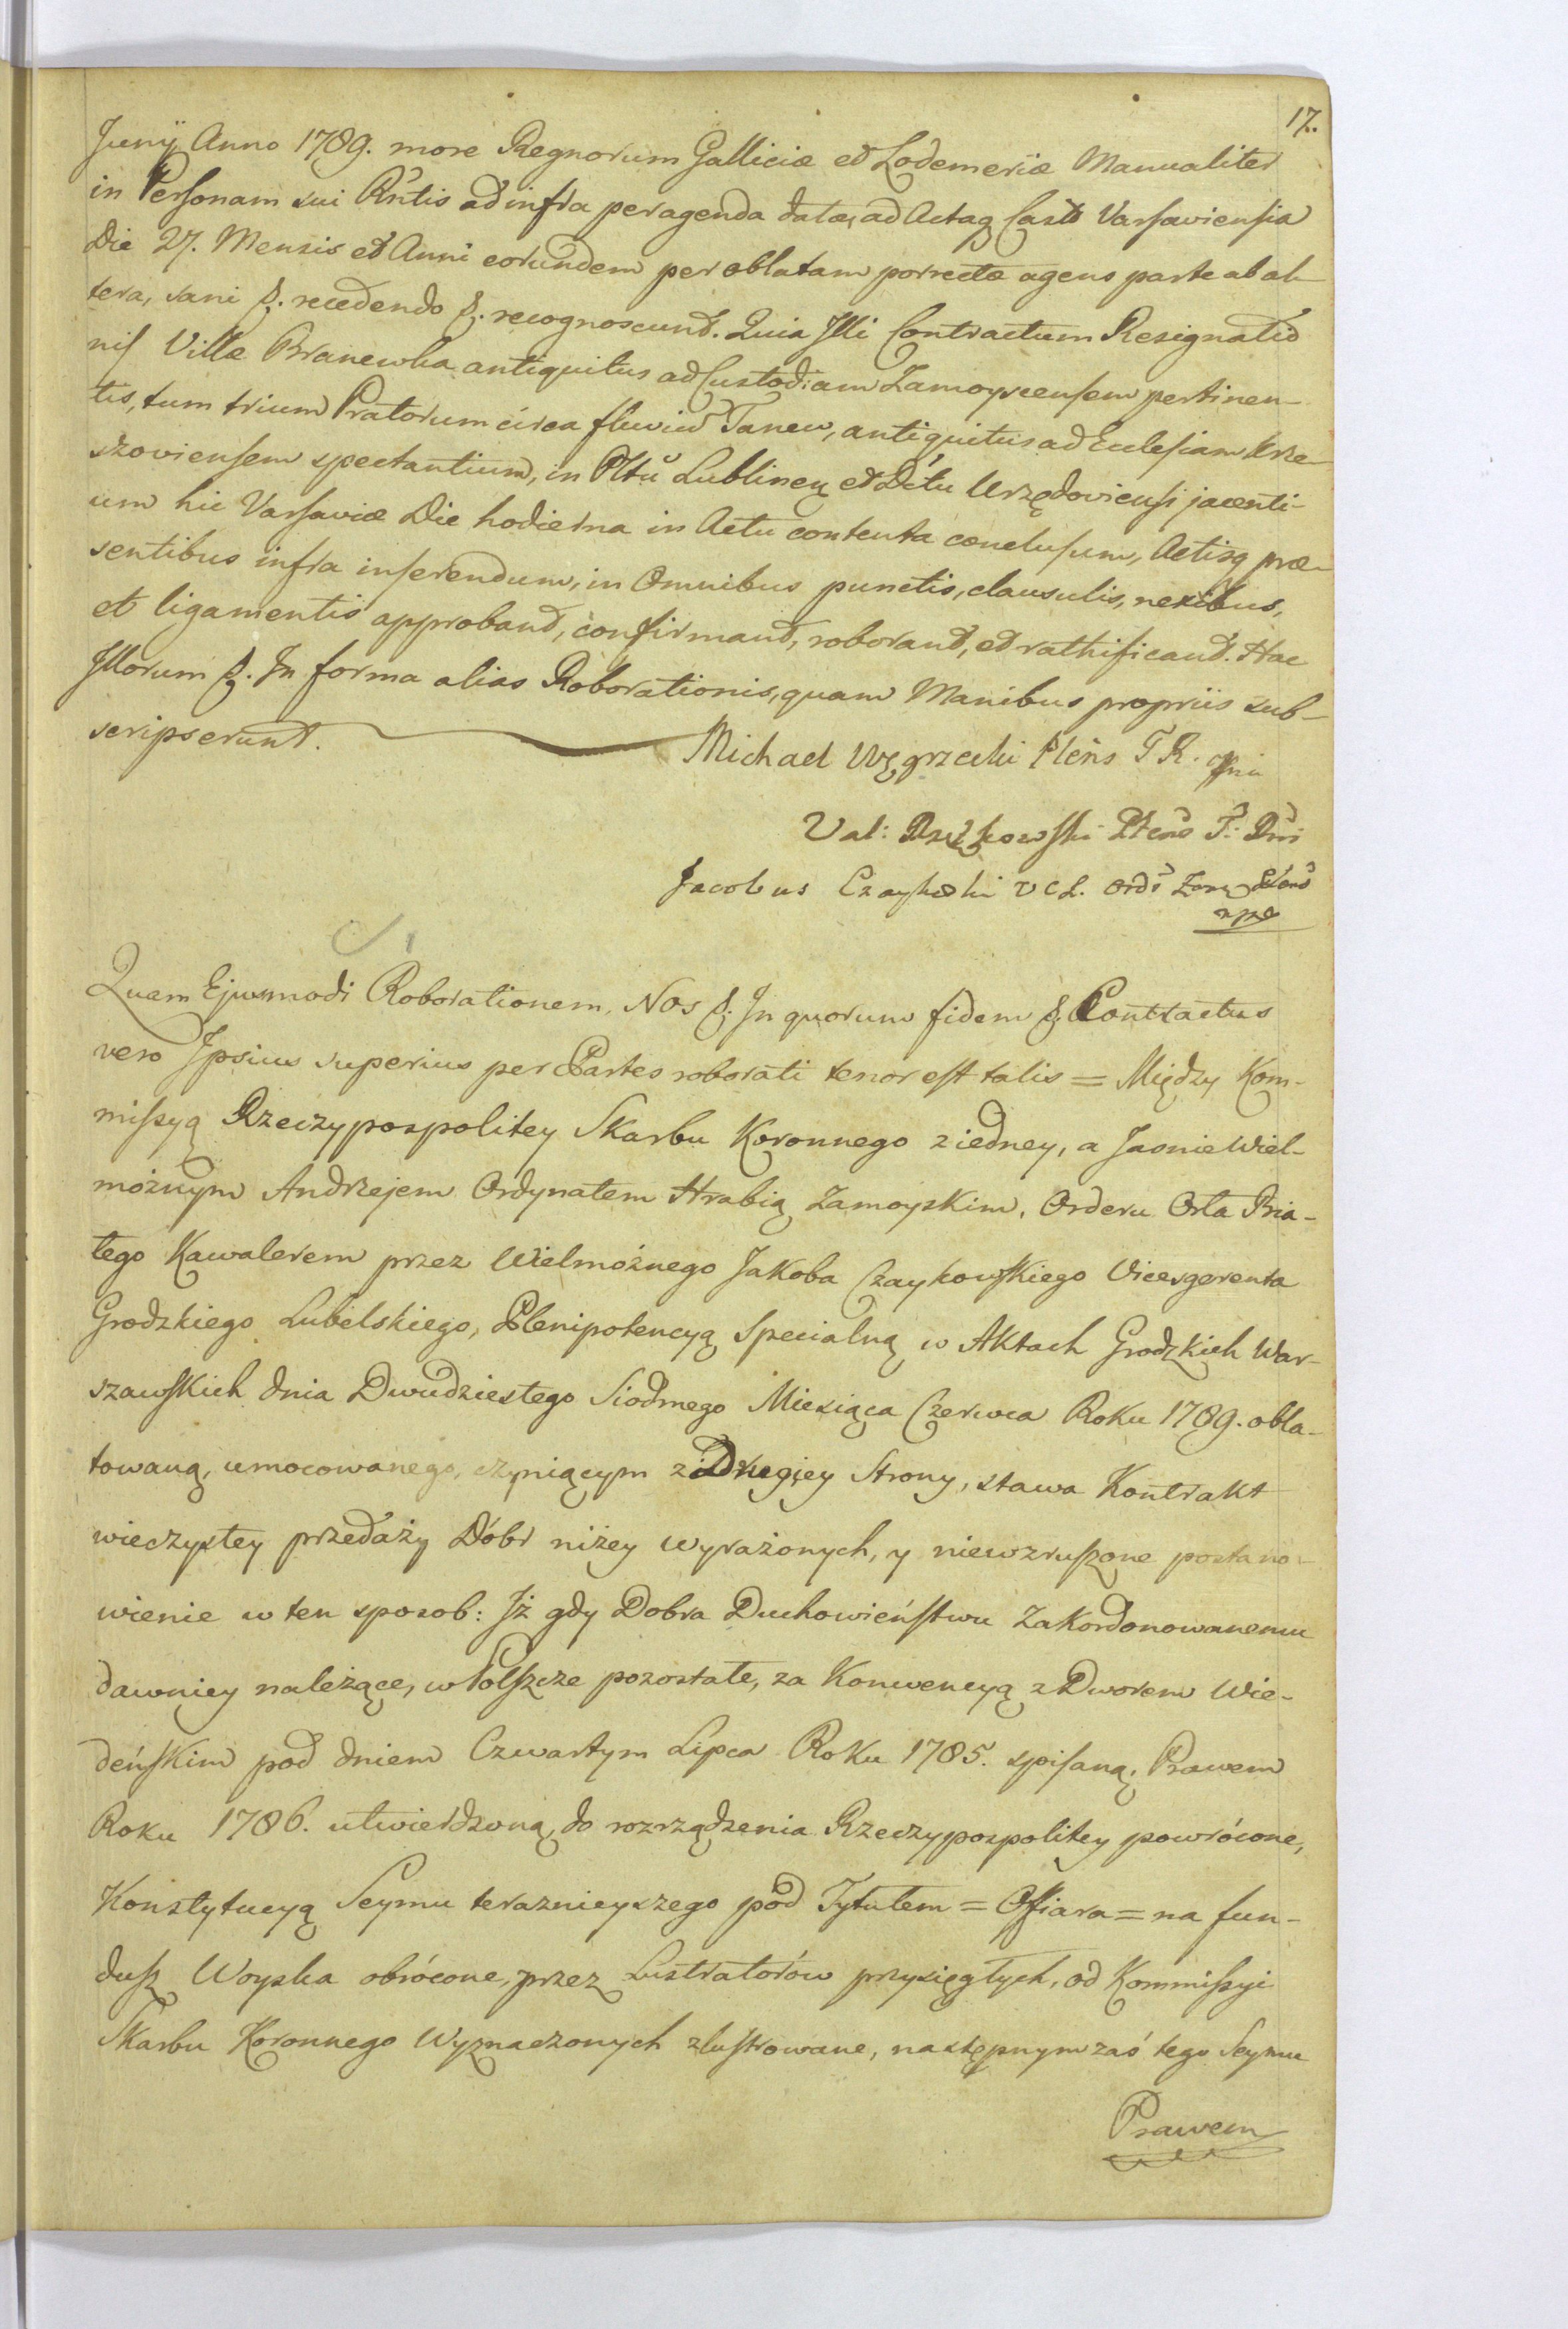 17.
Junÿ Anno 1789. more Regnorum Galliciæ et Lodemeriæ Manualiter
in Personam sui Rntis ad infra peragenda datæ, ad Actaq Castr Varsaviensia
Die 27. Mensis et Anni eorundem per oblatam porrectæ agens parte ab al-
tera, sani p. recedendo p. recognoscunt. Quia Illi Contractum Resignatio
nis Villæ Branewka antiquitus ad Custodiam Zamoyscensem pertinen-
tis, tum trium Pratorum circa fluviu Tanew, antiquitus ad Ecclesiam Krze-
szoviensem spectantium, in Pltu Lublinen et Dctu Urzędoviensi jacenti-
um hic Varsaviæ Die hodierna in Actu contenta conclusum, Actisq præ-
sentibus infra inserendum, in Omnibus punctis, clausulis, nexibus,
et ligamentis approband, confirmand, roborand, et rathificand. Hac
Illorum p. In forma alias Roborationis, quam Manibus propriis sub-
scripserunt.
Michael Węgrzecki Plens T R.
Val: Plens T:
Jacobus Czaykoski V C L. Ord: Zam Plens
mpp
Quam Ejusmodi Roborationem, Nos p. In quorum fidem p. Contractus
vero Ipsius superius per Partes roborati tenor est talis = Między Kom-
missyą Rzeczypospolitey Skarbu Koronnego z iedney, a Jasnie Wiel-
możnym Andrzejem Ordynatem Hrabią Zamoyskim, Orderu Orła Bia-
łego Kawalerem przez Wielmożnego Jakoba Czaykowskiego Vicesgerenta
Grodzkiego Lubelskiego, Plenipotencyą Specialną w Aktach Grodzkich War-
szawskich dnia Dwudziestego Siodmego Miesiąca Czerwca Roku 1789. obla-
towaną, umocowanego, czyniącym z Drugiey Strony, stawa Kontrakt
wieczystey przedaży Dóbr niżey wyrażonych, y niewzruszone postano-
wienie w ten sposob: Iż gdy Dobra Duchowieństwu Zakordonowanemu
dawniey należące, w Polszcze pozostałe, za Konwencyą z Dworem Wie-
deńskim pod dniem Czwartym Lipca Roku 1785. spisaną, Prawem
Roku 1786. utwierdzoną, do rozrządzenia Rzeczypospolitey powrócone,
Konstytucyą Seymu teraznieyszego pod Tytułem = Offiara = na fun-
dusz Woyska obrócone, przez Lustratorów przysięgłych, od Kommissyi
Skarbu Koronnego Wyznaczonych zlustrowane, następnym zaś tego Seymu
Prawem